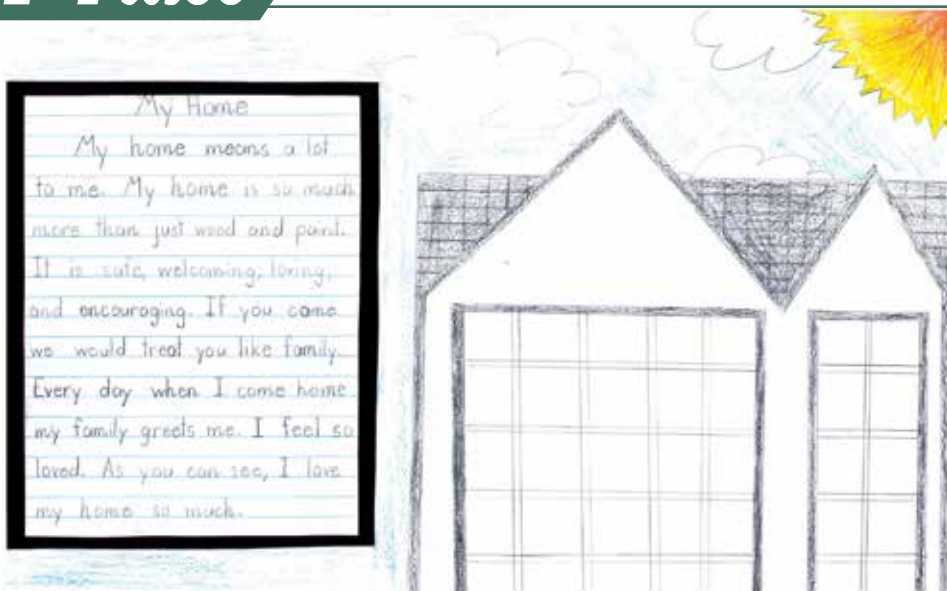 My Home
My home means a lot
to me. My home is so much
more than just wood and paint.
It is safe, welcoming, loving,
and encouraging. If you came
we would treat you like family.
Every day when I come home
my family greets me. I feel so
loved. As you can see, I love
my home so much.